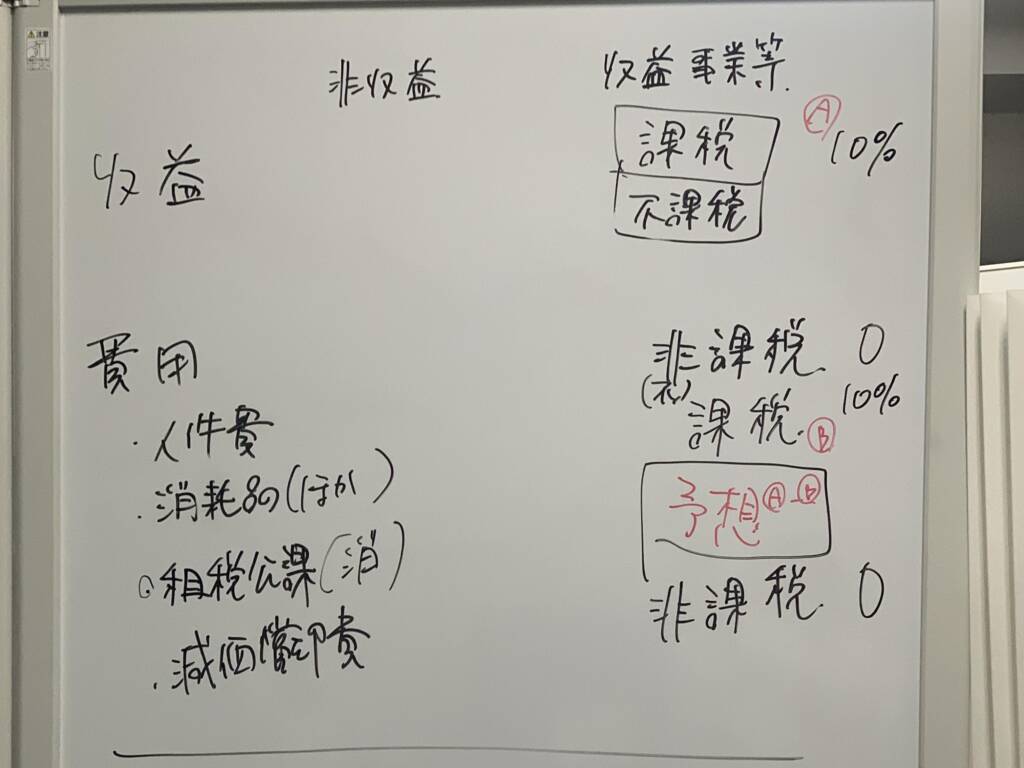 注意
非収益 収益事業等.
収益 課税 Ⓐ 10%
不課税
費用 非課税. 0
・人件費 (不) 課税. Ⓑ 10%
・消耗品(ほか) 予想Ⓐ-Ⓑ
◦租税公課(消) 非課税. 0
・減価償却費